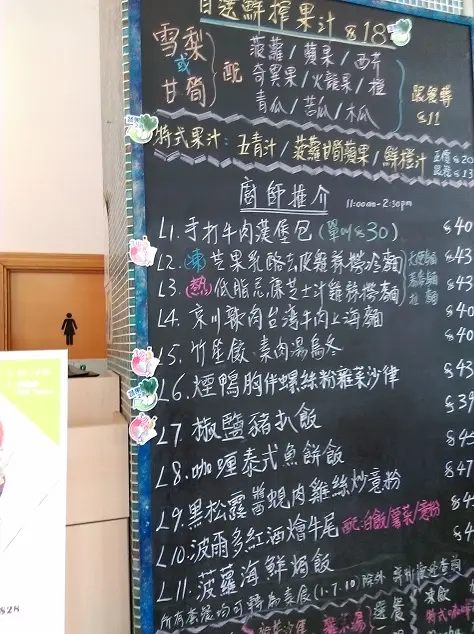 自選鮮搾果汁 $18
雪梨 或 甘筍 配
菠蘿/蘋果/西芹
奇異果/火龍果/橙
青瓜/苦瓜/木瓜
跟餐葬
$11
特式果汁: 五青汁/菠蘿甘筍蘋果/鮮橙汁
$20
$13
廚師推介 11:00am-2:30pm
L1. 手打牛肉漢堡包 (單叫$30) $40
L2. (凍) 芒果乳酪去皮雞絲撈冷麵 $43
L3. (熱) 低脂忌廉芝士汁雞絲撈麵 $43
L4. 京川辣肉台灣牛肉上海麵 $40
L5. 竹笙餃、素肉湯烏冬 $40
L6. 煙鴨胸伴螺絲粉雜菜沙律 $43
L7. 椒鹽豬扒飯 $39
L8. 咖喱泰式魚餅飯
L9. 黑松露醬西蜆肉雞絲炒意粉 $47
L10. 波爾多紅酒燴牛尾 配:白飯/薯菜/意粉
L11. 菠蘿海鮮焗飯
所有套餐均可轉為素食(1.7.10)除外
凍飲
特式
$28